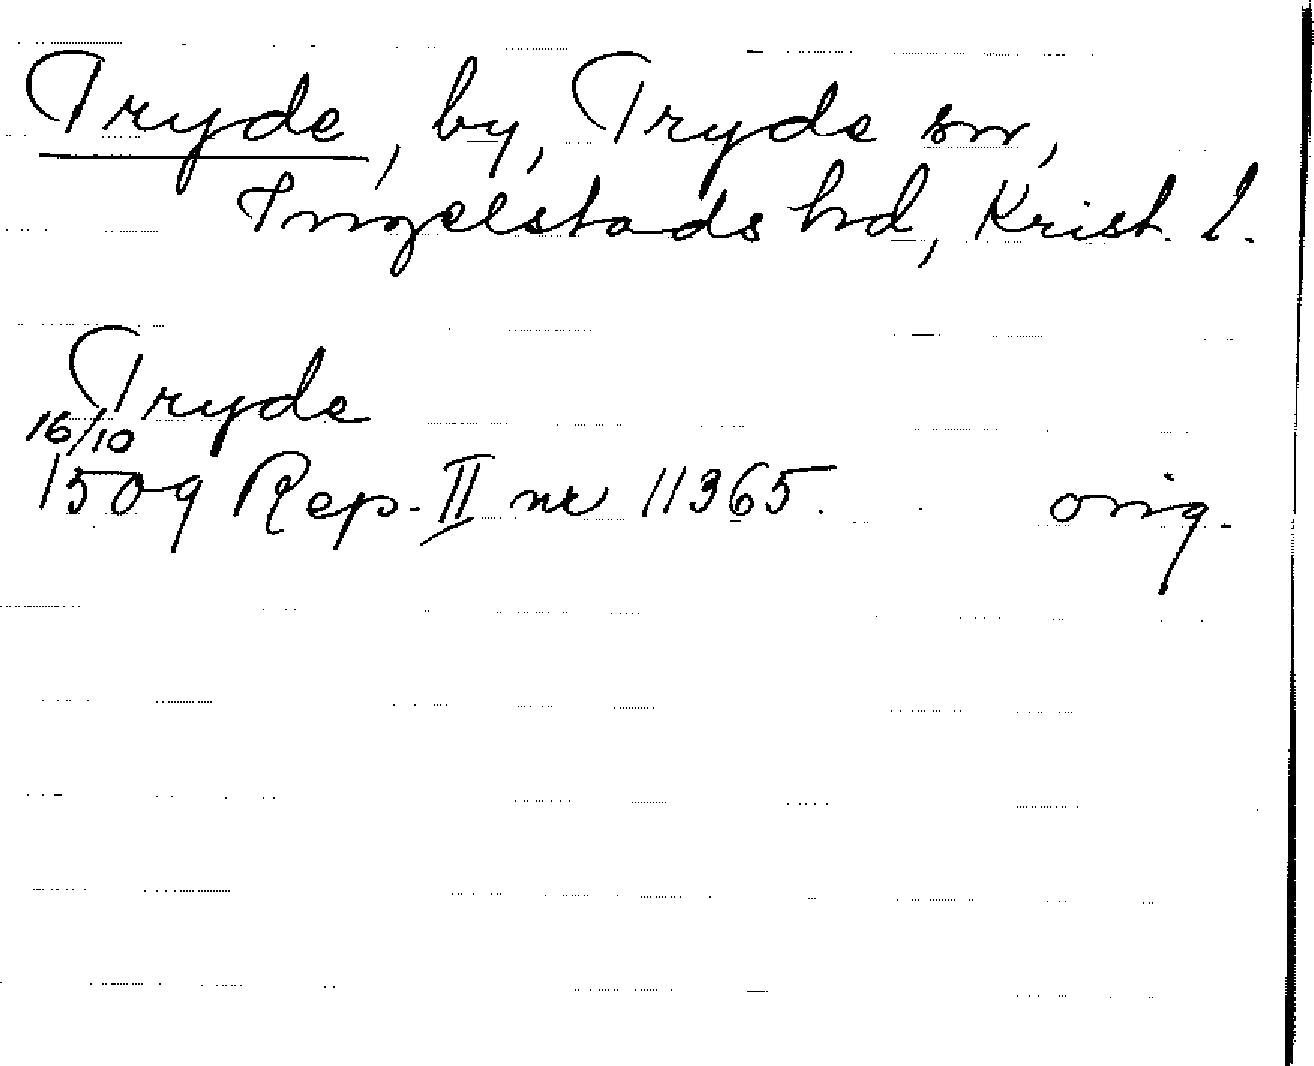 Tryde, by, Tryde sn,
Ingelstads hd, Krist. l.
Tryde
16/10
1509 Rep. II nr 11365. orig.